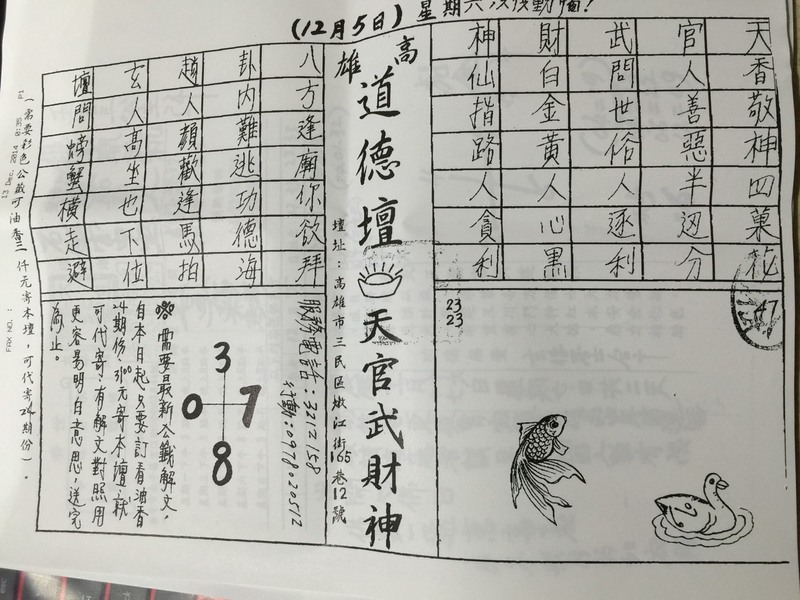 (12月5日)星期六
天香敬神四菓花
官人善惡半边分
武問世俗人逐利
財白金黃人心黑
神仙指路人貪利
高雄
道德壇
天官武財神
壇址：高雄市三民區嫩江街165巷12號
八方逢廟你欲拜
卦內難逃功德海
趙人頻歡逢馬拍
玄人高坐也下位
壇問螃蟹橫走避
47
23
23
服務電話：3212158
行動：0978020512
3
0 7
8
※需要最新公籤解文，
自本日起只要訂看油香
24期份，3100元寄本壇，就
可代寄：有解文對照用
更容易明白意思，送完
為止。
(需要彩色公籤可油香三仟元寄本壇，可代寄24期份)。